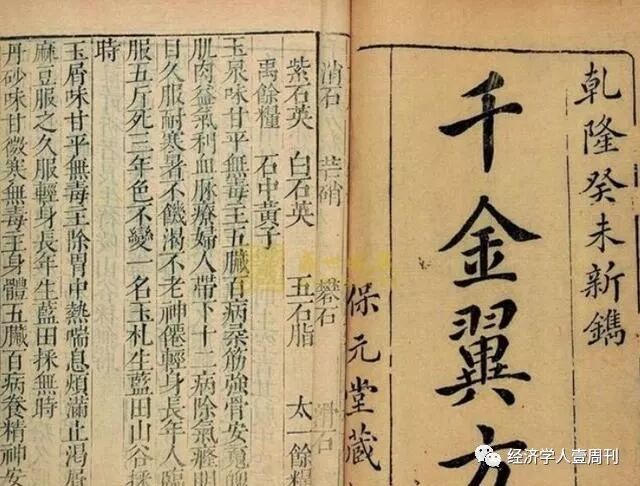 乾隆癸未新鐫
千金翼方
保元堂藏
消石 芒硝 礬石 滑石
紫石英 白石英 五石脂 太一餘糧
禹餘糧 石中黃子
玉泉味甘平無毒主五臟百病柔筋強骨安魂
肌肉益氣利血脉療婦人帶下十二病除氣癃明
目久服耐寒暑不饑渴不老神僊輕身長年人臨
服五斤死三年色不變一名玉札生藍田山谷採
時
玉屑味甘平無毒主除胃中熱喘息煩滿止渴屑
麻豆服之久服輕身長年生藍田採無時
丹砂味甘微寒無毒主身體五臟百病養精神安
经济学人壹周刊